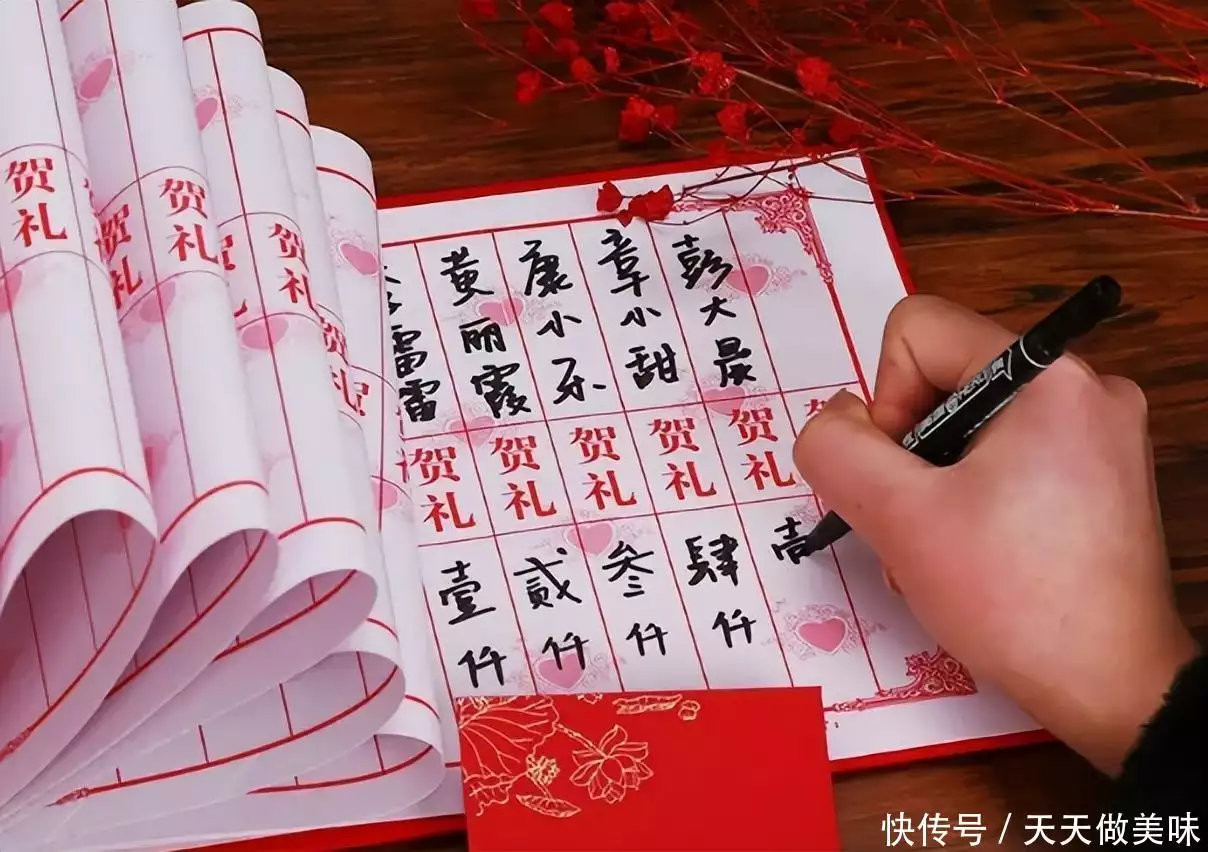 贺礼
贺礼
贺礼
贺礼
贺礼
雷雷 贺礼 壹仟
黄丽霞 贺礼 贰仟
康小乐 贺礼 叁仟
章小甜 贺礼 肆仟
彭大晨 贺礼 壹
快传号 / 天天做美味